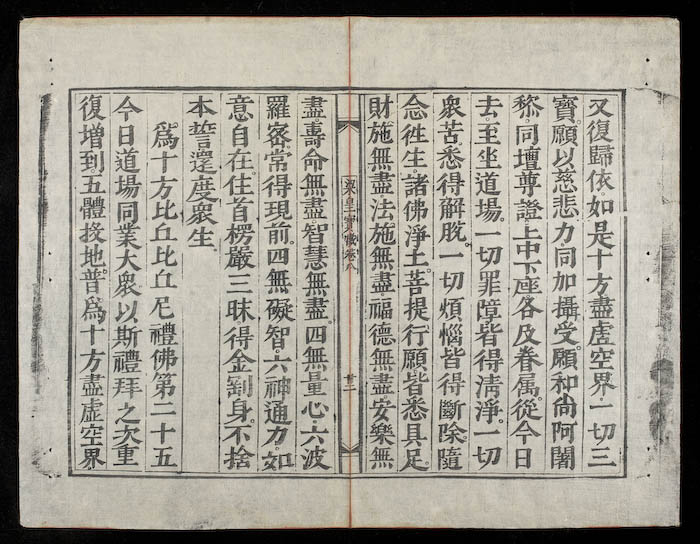 又復歸依如是十方盡虛空界一切三
寶。願以慈悲力。同加攝受。願和尚阿闍
黎。同壇尊證。上中下座。各及眷屬。從今日
去。至坐道場。一切罪障皆得清淨。一切
衆苦悉得解脫。一切煩惱皆得斷除。隨
念徃生。諸佛淨土。菩提行願。皆悉具足。
財施無盡。法施無盡。福德無盡。安樂無
梁皇寶懺卷八
廿二
盡。壽命無盡。智慧無盡。四無量心。六波
羅密。常得現前。四無礙智。六神通力。如
意自在。住首楞嚴三昧。得金剛身。不捨
本誓。還度衆生。
爲十方比丘比丘尼禮佛第二十五
今日道場同業大衆。以斯禮拜之次。重
復增到。五體投地。普爲十方盡虛空界